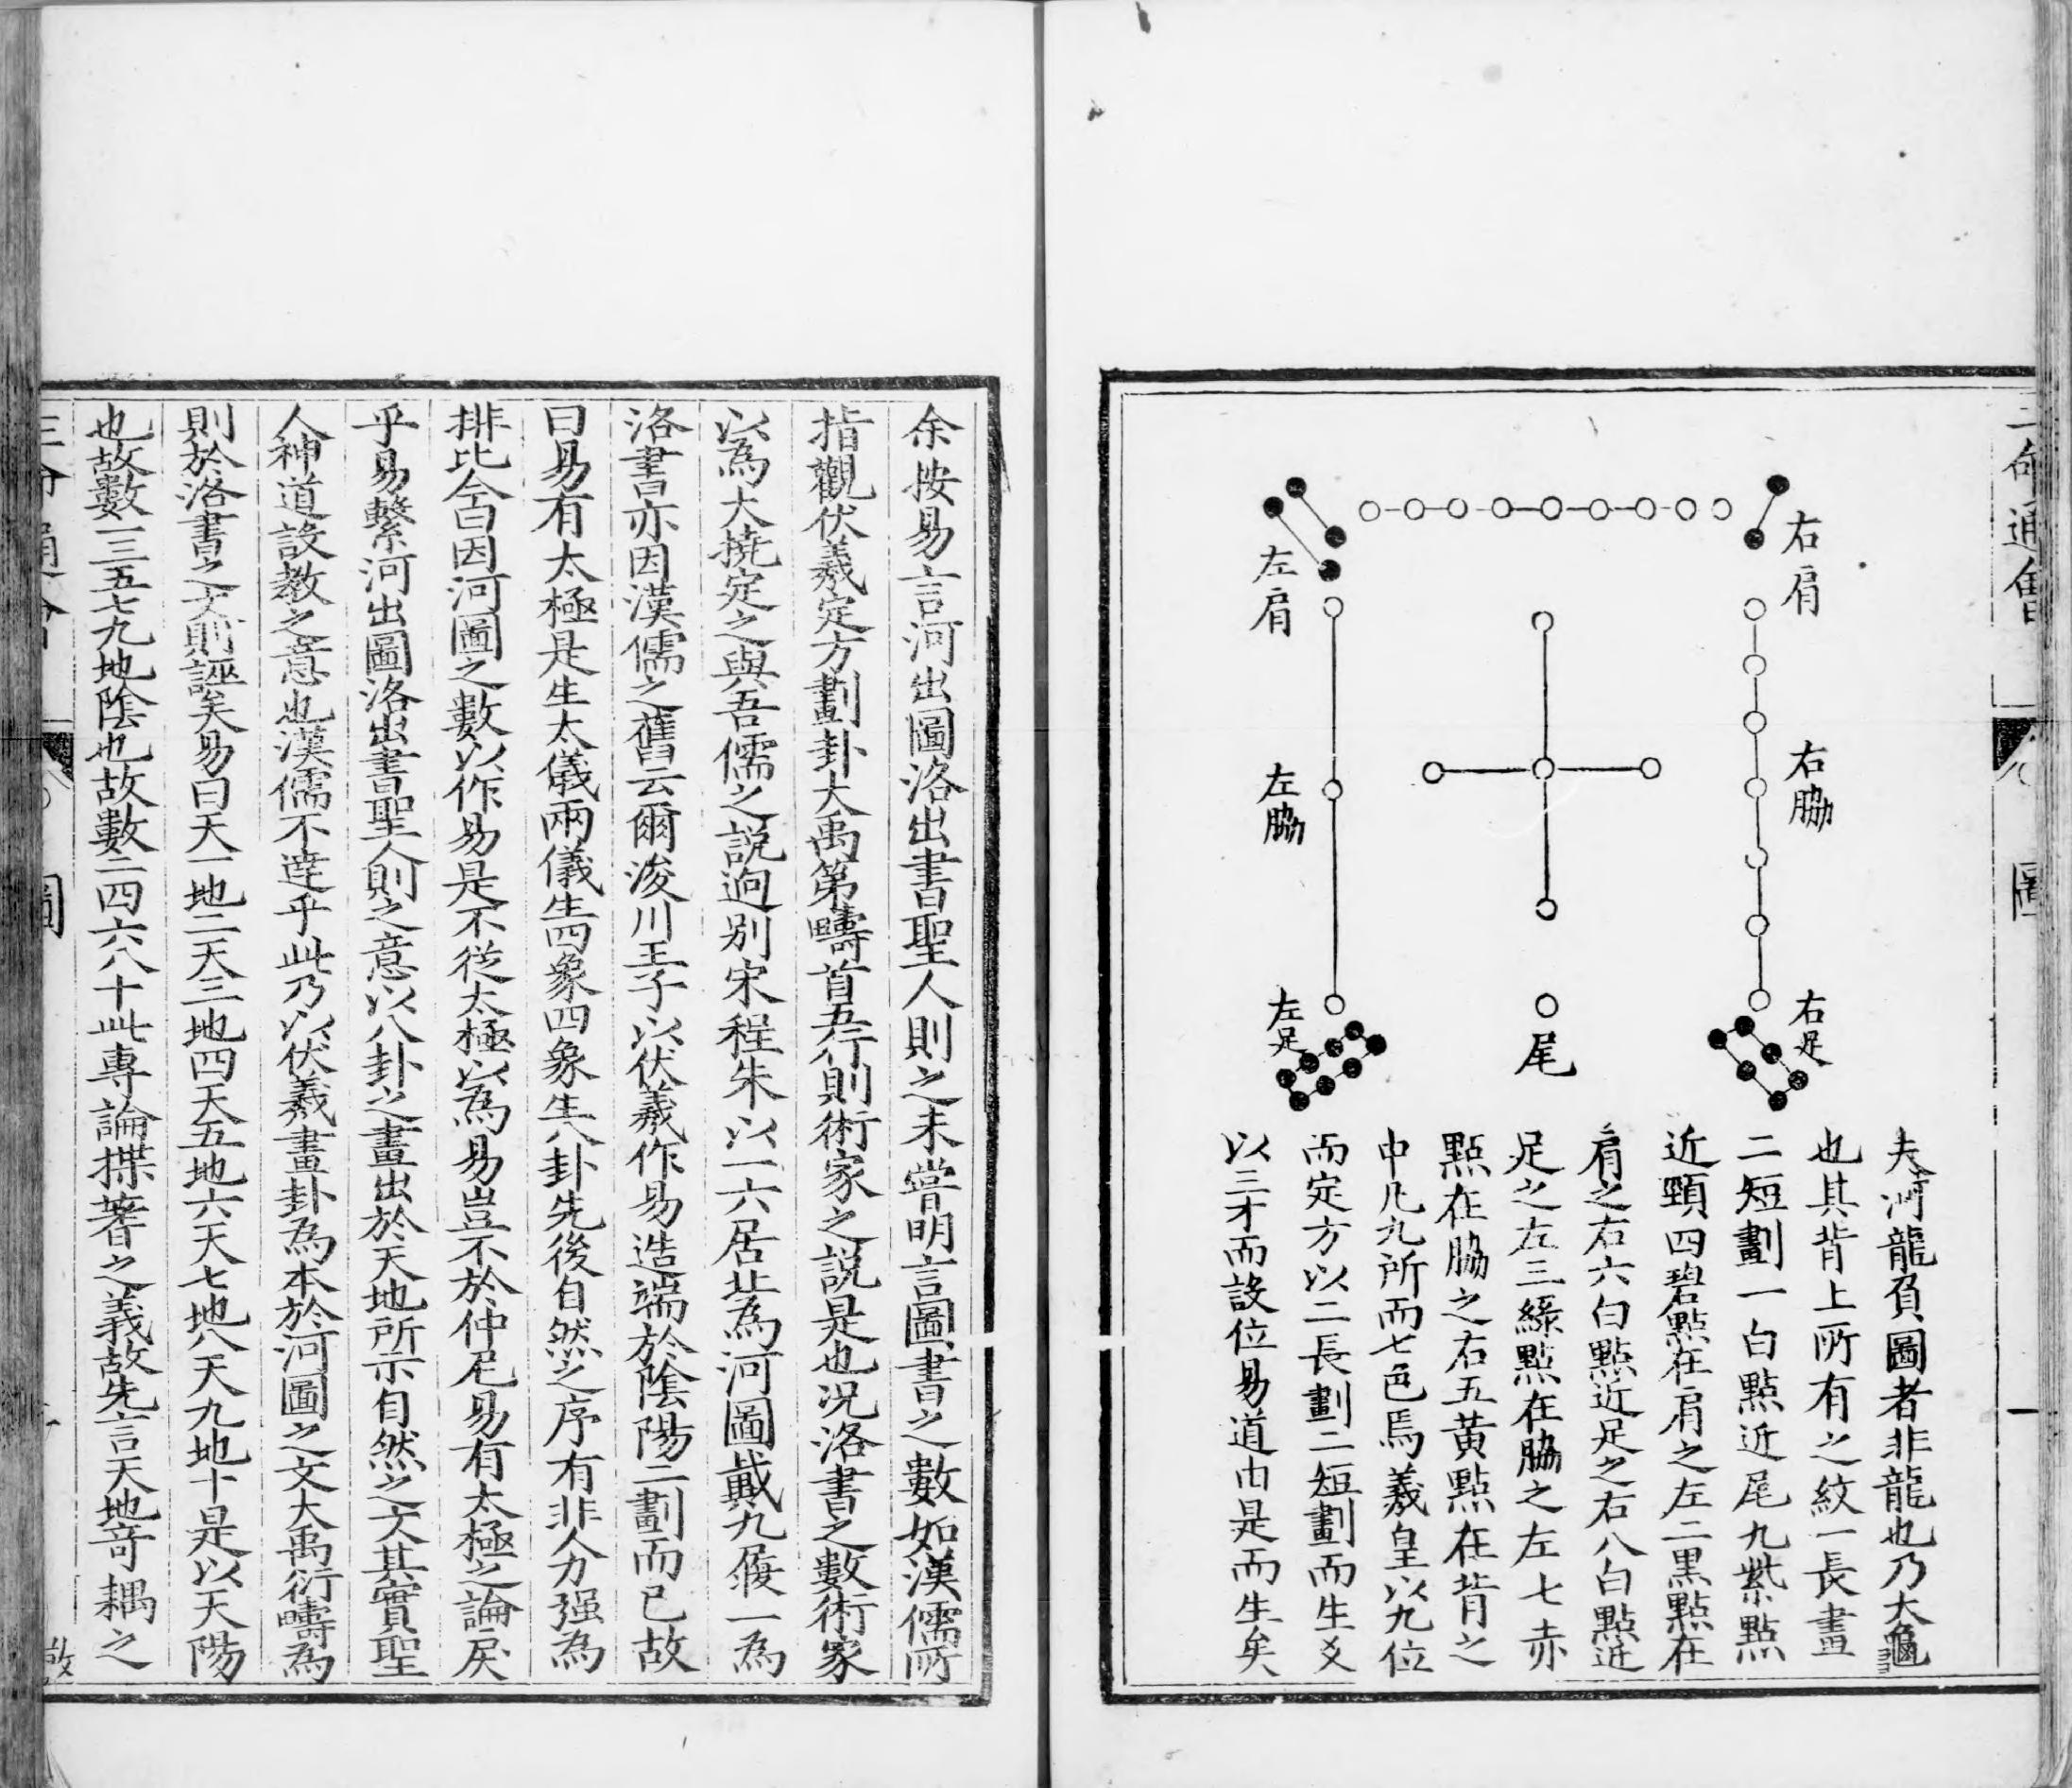 三命通會
圖
一
右肩
左肩
右脇
左脇
右足
左足
尾
夫河龍負圖者非龍也乃大龜
也其背上所有之紋一長畫
二短劃一白點近尾九紫點
近頸四碧點在肩之左二黑點在
肩之右六白點近足之右八白點近
足之左三綠點在脇之左七赤
點在脇之右五黃點在背之
中凡九所而七色焉羲皇以九位
而定方以二長劃二短劃而生爻
以三才而設位易道由是而生矣
余按易言河出圖洛出書聖人則之未嘗明言圖書之數如漢儒所
指觀伏羲定方劃卦大禹第疇首五行則術家之說是也况洛書之數術家
以為大撓定之與吾儒之說逈别宋程朱以一六居北為河圖戴九履一為
洛書亦因漢儒之舊云爾浚川王子以伏羲作易造端於陰陽二劃而已故
曰易有太極是生太儀兩儀生四象四象生八卦先後自然之序有非人力强為
排比今曰因河圖之數以作易是不從太極以為易豈不於仲尼易有太極之論戾
乎易繫河出圖洛出書聖人則之意以八卦之畫出於天地所示自然之文其實聖
人神道設教之意也漢儒不達乎此乃以伏羲畫卦為本於河圖之文大禹衍疇為
則於洛書之文則誣矣易曰天一地二天三地四天五地六天七地八天九地十是以天陽
也故數一三五七九地陰也故數二四六八十此專論揲蓍之義故先言天地奇耦之